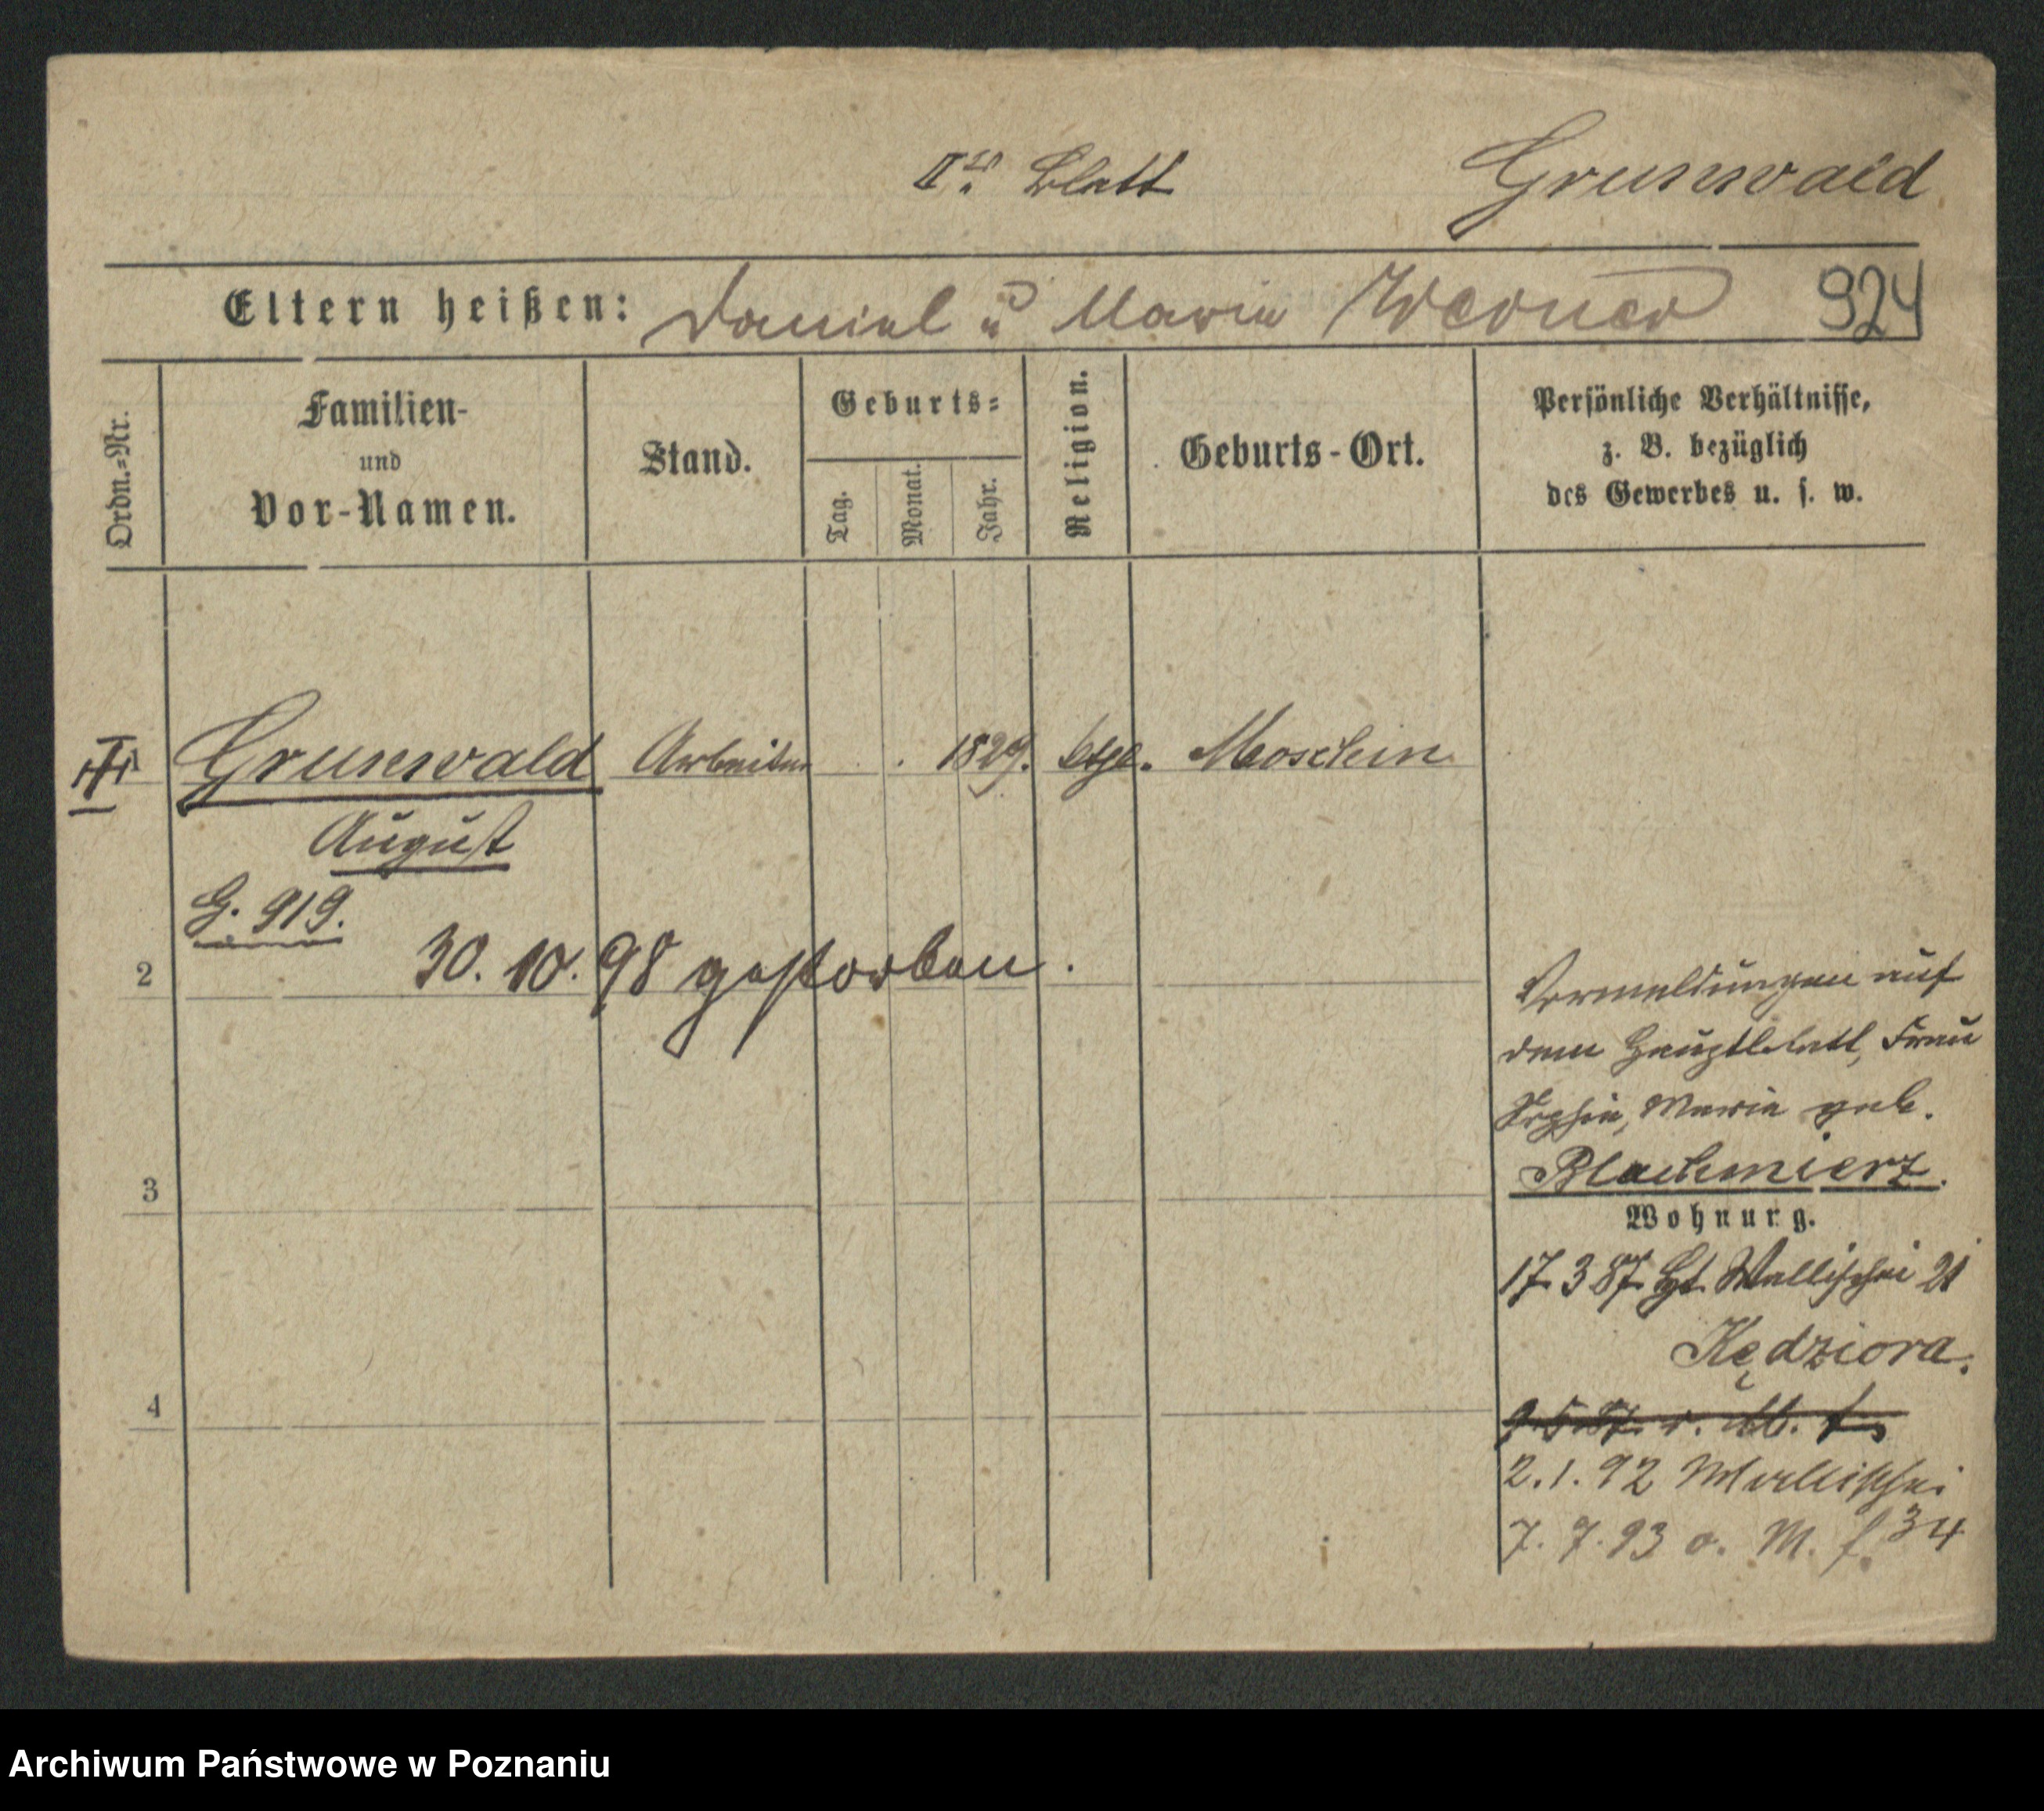 IIes Blatt
Grunwald
Eltern heißen: Daniel u Marie Werner 924
Ordn.=Nr.
Familien-
und
Vor-Namen.
Stand.
Geburts=
Tag.
Monat.
Jahr.
Religion.
Geburts-Ort.
Persönliche Verhältnisse,
z. B. bezüglich
des Gewerbes u. s. w.
Grunwald Arbeiter 1829. kthl. Moschin
August
G. 919.
30. 10. 98 gestorben.
2
3
4
Vermeldungen auf
dem Hauptblatt, Frau
Sophie, Marie geb.
Blachmierz.
Wohnurg.
17. 3 87. Wallischei 21
Kędziora.
2. 1. 92 Wallischei
34
7. 7. 93 o. M. f.
Archiwum Państwowe w Poznaniu